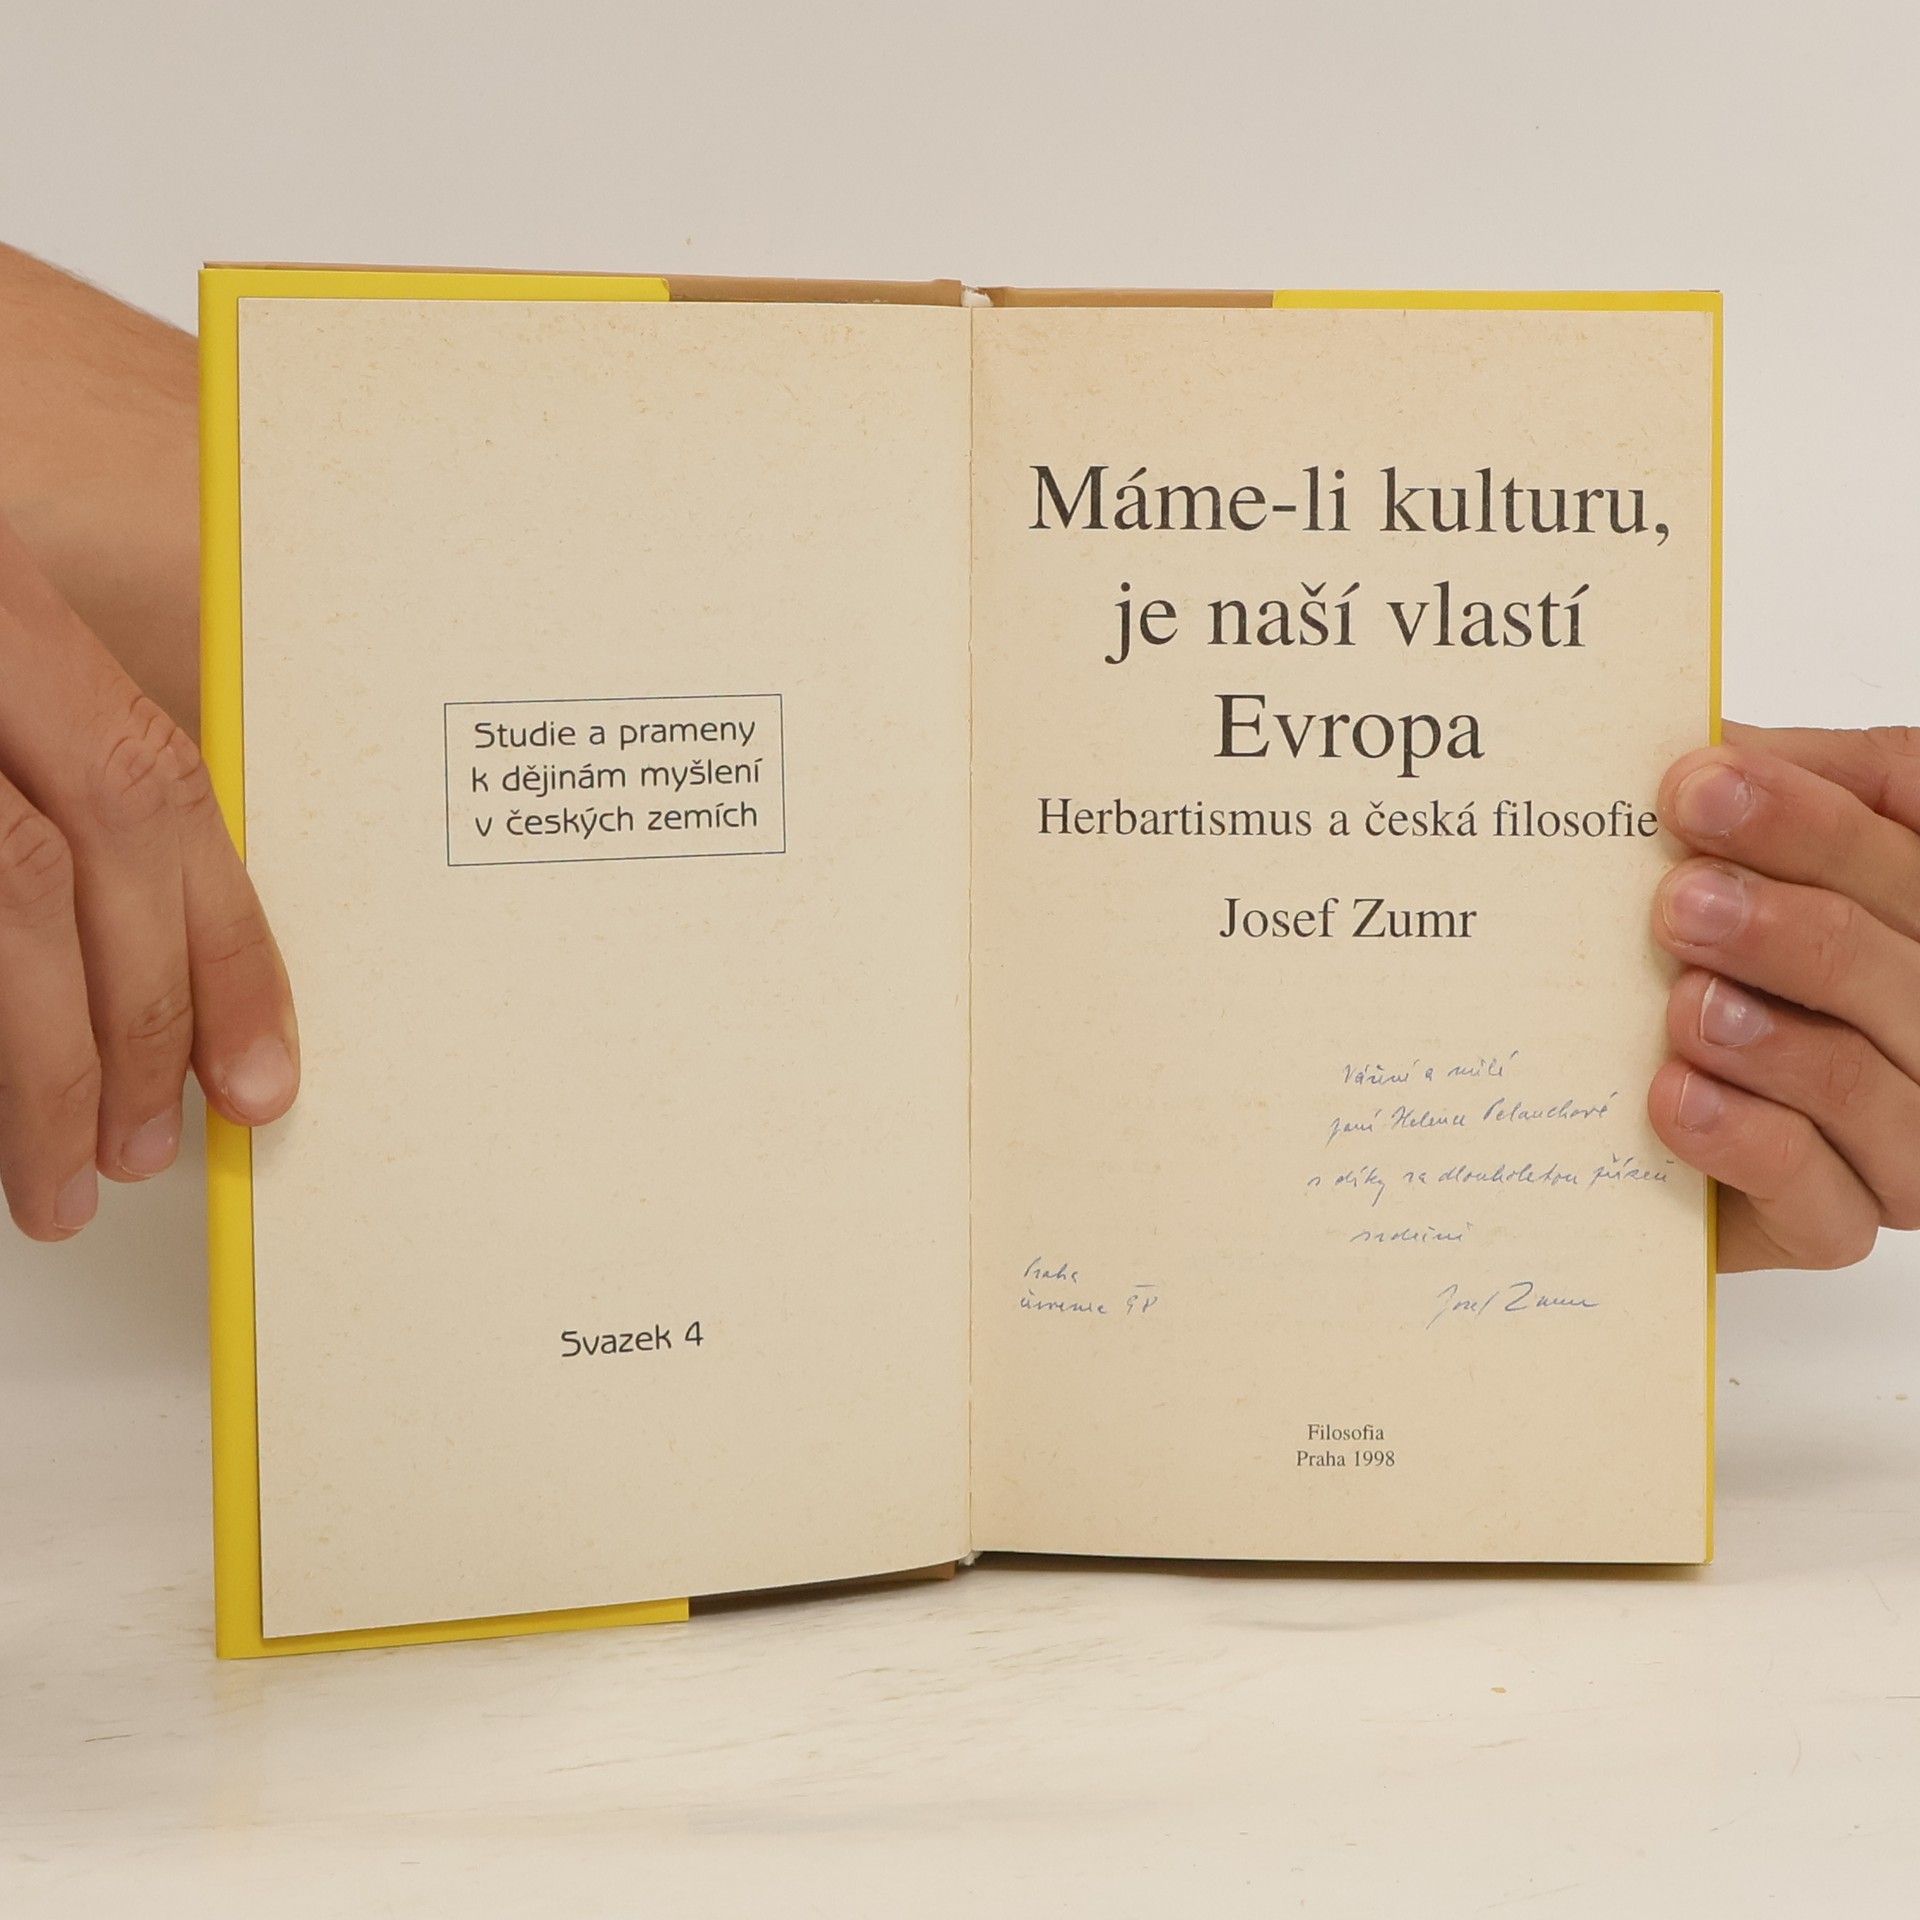 Studie a prameny
k dějinám myšlení
v českých zemích
Svazek 4
Máme-li kulturu,
je naší vlastí
Evropa
Herbartismus a česká filosofie
Josef Zumr
Vážené a milé
paní Helence
s díky za dlouholetou přízeň
srdečně
Praha
červenec 98
Josef Zumr
Filosofia
Praha 1998